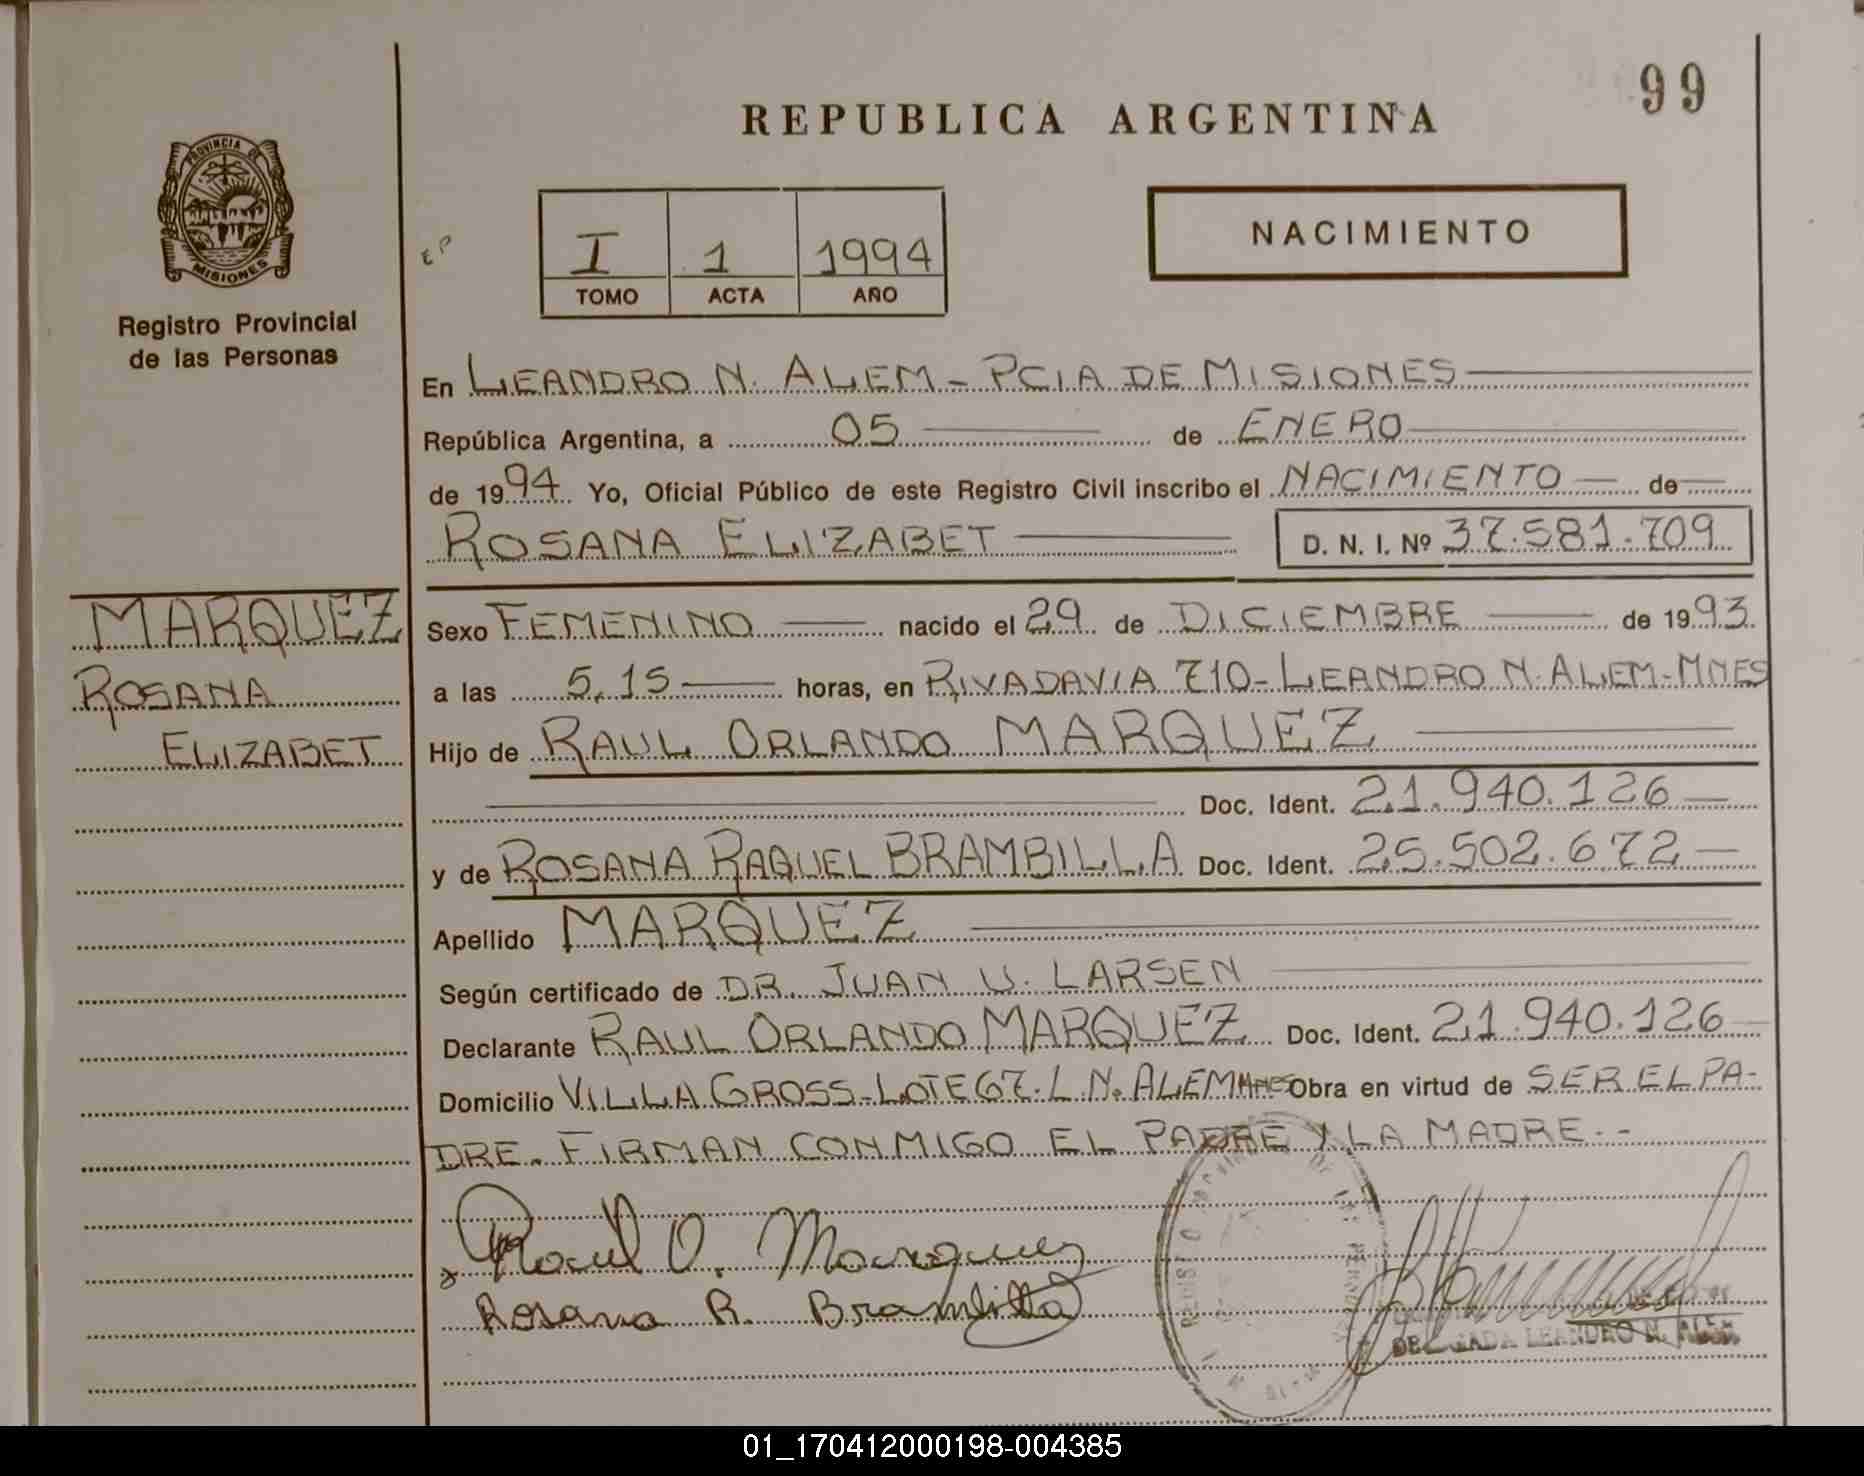 99
REPUBLICA ARGENTINA
PROVINCIA DE
MISIONES
Registro Provincial
de las Personas
I 1 1994
TOMO ACTA AÑO
NACIMIENTO
En LEANDRO N. ALEM - PCIA DE MISIONES
República Argentina, a 05 de ENERO
de 1994 Yo, Oficial Público de este Registro Civil inscribo el NACIMIENTO de
ROSANA ELIZABET D. N. I. Nº 37.581.709
MARQUEZ
ROSANA
ELIZABET
Sexo FEMENINO nacido el 29 de DICIEMBRE de 1993
a las 5,15 horas, en RIVADAVIA 710 - LEANDRO N. ALEM - MNES
Hijo de RAUL ORLANDO MARQUEZ
Doc. Ident. 21.940.126
y de ROSANA RAQUEL BRAMBILLA Doc. Ident. 25.502.672
Apellido MARQUEZ
Según certificado de DR. JUAN U. LARSEN
Declarante RAUL ORLANDO MARQUEZ Doc. Ident. 21.940.126
Domicilio VILLA GROSS - LOTE 67. L. N. ALEM MNES Obra en virtud de SER EL PA-
DRE. FIRMAN CONMIGO EL PADRE Y LA MADRE. -
Raul O. Marquez
Rosana R. Brambilla
LEANDRO N. ALEM
01_170412000198-004385